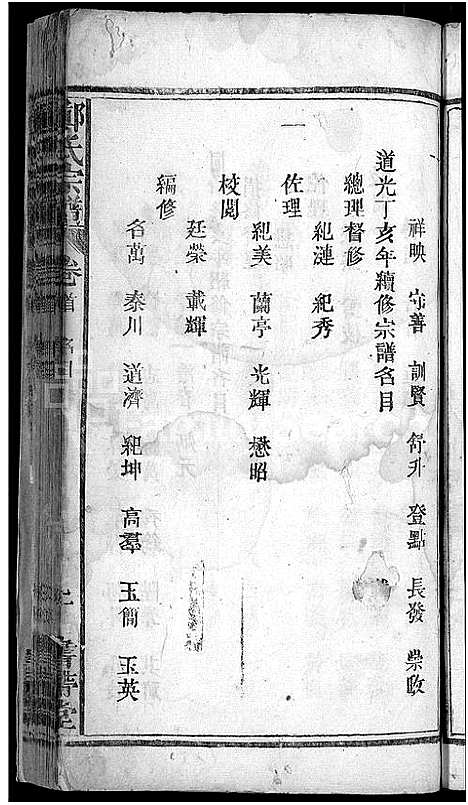 祥映 守善 訓賢 舒升 登點 長發 崇畋
道光丁亥年續修宗譜名目
總理督修
紀漣 紀秀
佐理
紀美 蘭亭 光輝 懋昭
校閱
廷榮 載輝
編修
名萬 泰川 道濟 紀坤 高羣 玉簡 玉英
氏宗譜 卷首 名目